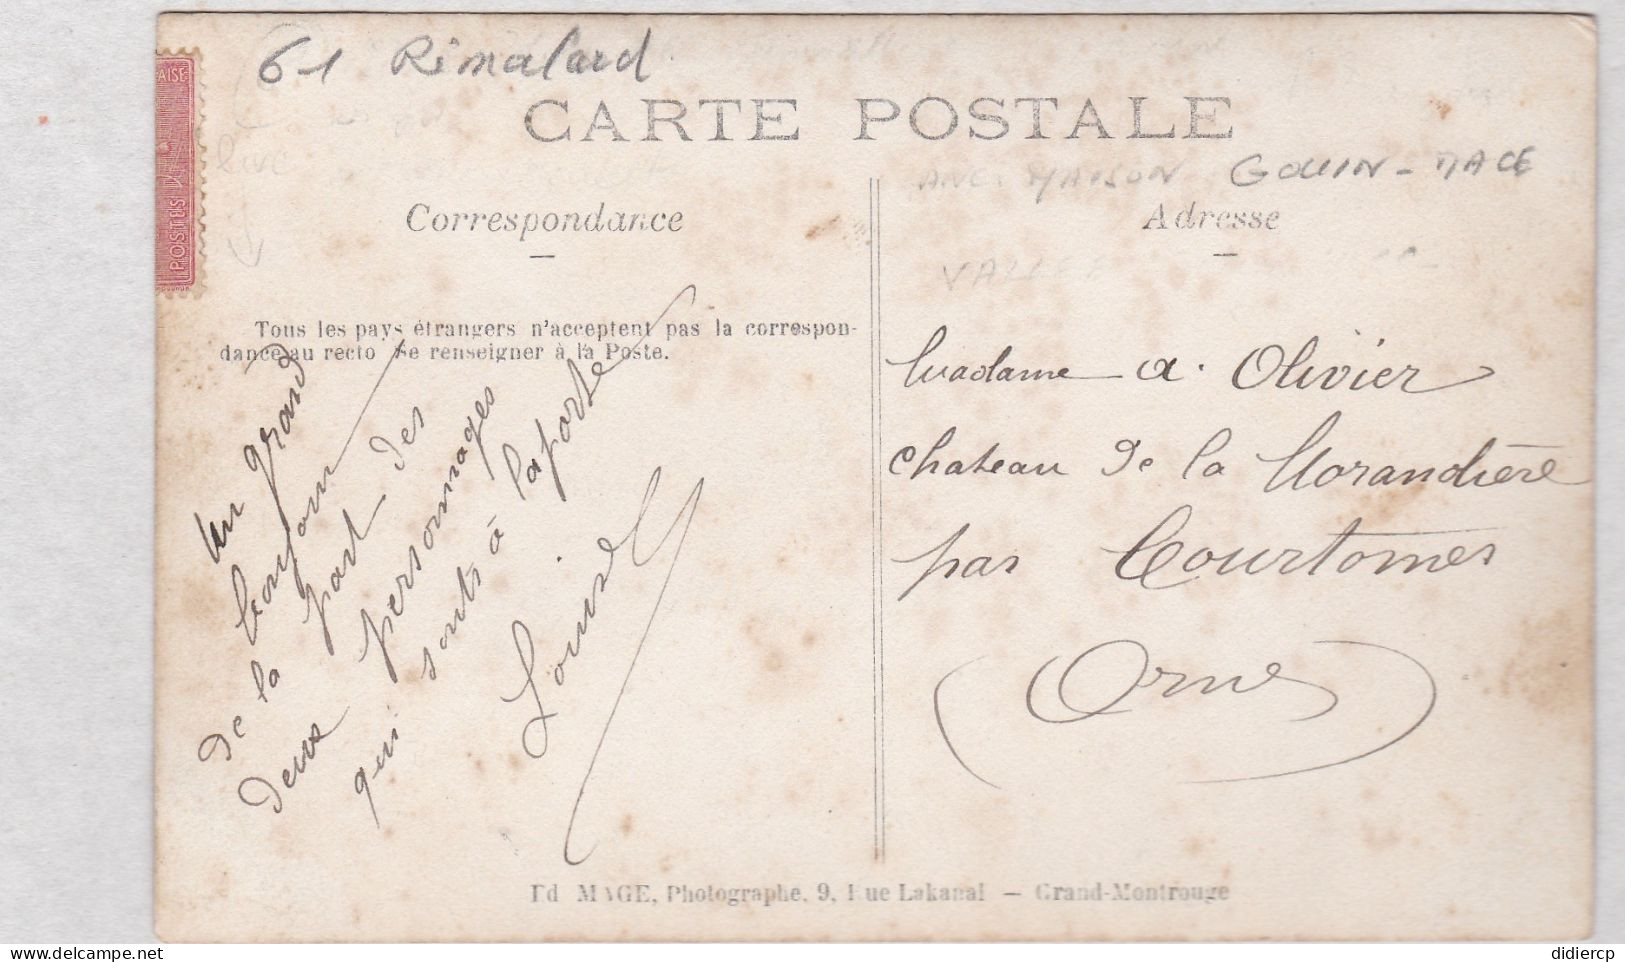 61 Rémalard
CARTE POSTALE
AISE
POSTES
ANC. MAISON GOUIN - MACE
Correspondance
Adresse
Tous les pays étrangers n'acceptent pas la correspon-
dance au recto Se renseigner à la Poste.
Un grand
bonjour
de la part des
deux personnages
qui sonts à laporte
Louise
Madame A. Olivier
chateau de la Morandière
par Courtomer
(Orne)
Ed MAGE, Photographe, 9, Rue Lakanal — Grand-Montrouge
didiercp